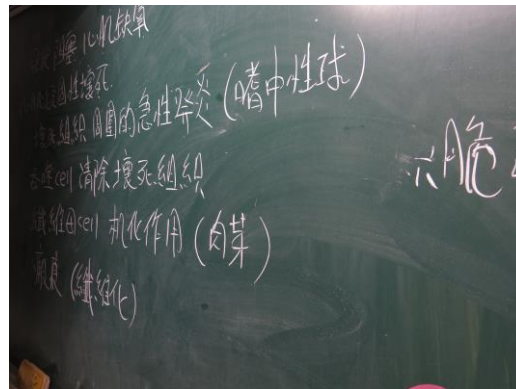 心肌缺氧
凝固性壞死
壞死組織周圍的急性發炎(嗜中性球)
吞噬cell清除壞死組織
纖維母cell 机化作用(肉芽)
瘢痕(纖維化)
脆